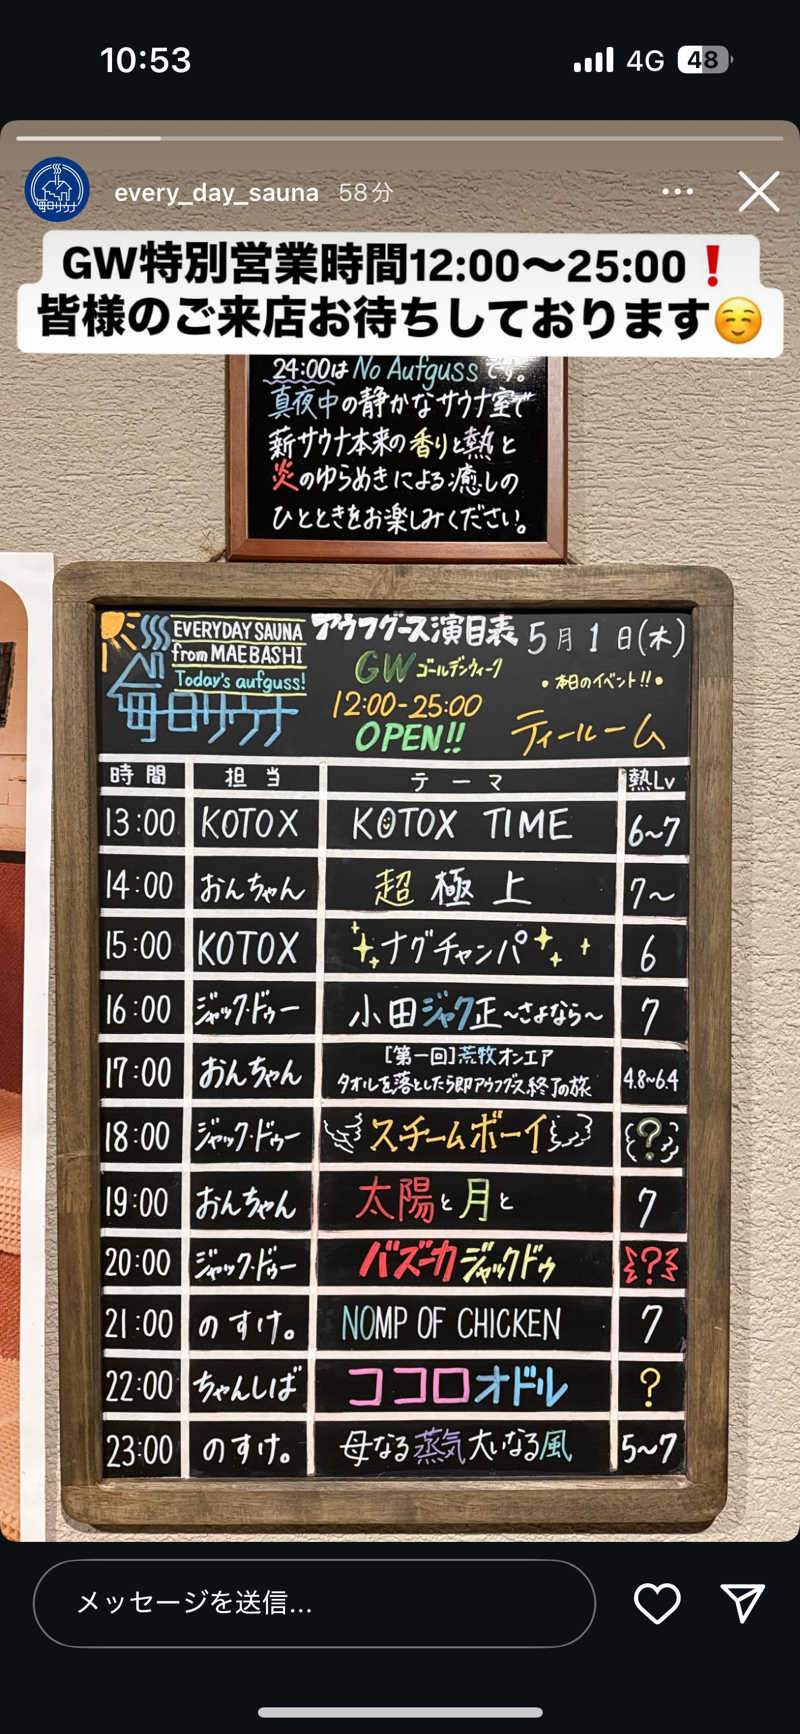 10:53
4G 48
every_day_sauna 58分
GW特別営業時間12:00〜25:00❗
皆様のご来店お待ちしております☺️
24:00はNo Aufgussです。
真夜中の静かなサウナ室で
薪サウナ本来の香りと熱と
炎のゆらめきによる癒しの
ひとときをお楽しみください。
EVERYDAY SAUNA
from MAEBASHI
Today's aufguss!
毎日サウナ
アウフグース演目表 5月1日(木)
GWゴールデンウィーク
12:00-25:00
OPEN!!
•本日のイベント!!•
ティールーム
時間 担当 テーマ 熱Lv
13:00 KOTOX KOTOX TIME 6~7
14:00 おんちゃん 超極上 7~
15:00 KOTOX ナグチャンパ 6
16:00 ジャック・ドゥー 小田ジャク正~さよなら~ 7
17:00 おんちゃん [第一回]荒牧オンエア
タオルを落としたら即アウフグス終了の旅 4.8~6.4
18:00 ジャック・ドゥー スチームボーイ ?
19:00 おんちゃん 太陽と月と 7
20:00 ジャック・ドゥー バズーカジャックドゥ ?
21:00 のすけ。 NOMP OF CHICKEN 7
22:00 ちゃんしば ココロオドル ?
23:00 のすけ。 母なる蒸気大いなる風 5~7
メッセージを送信...